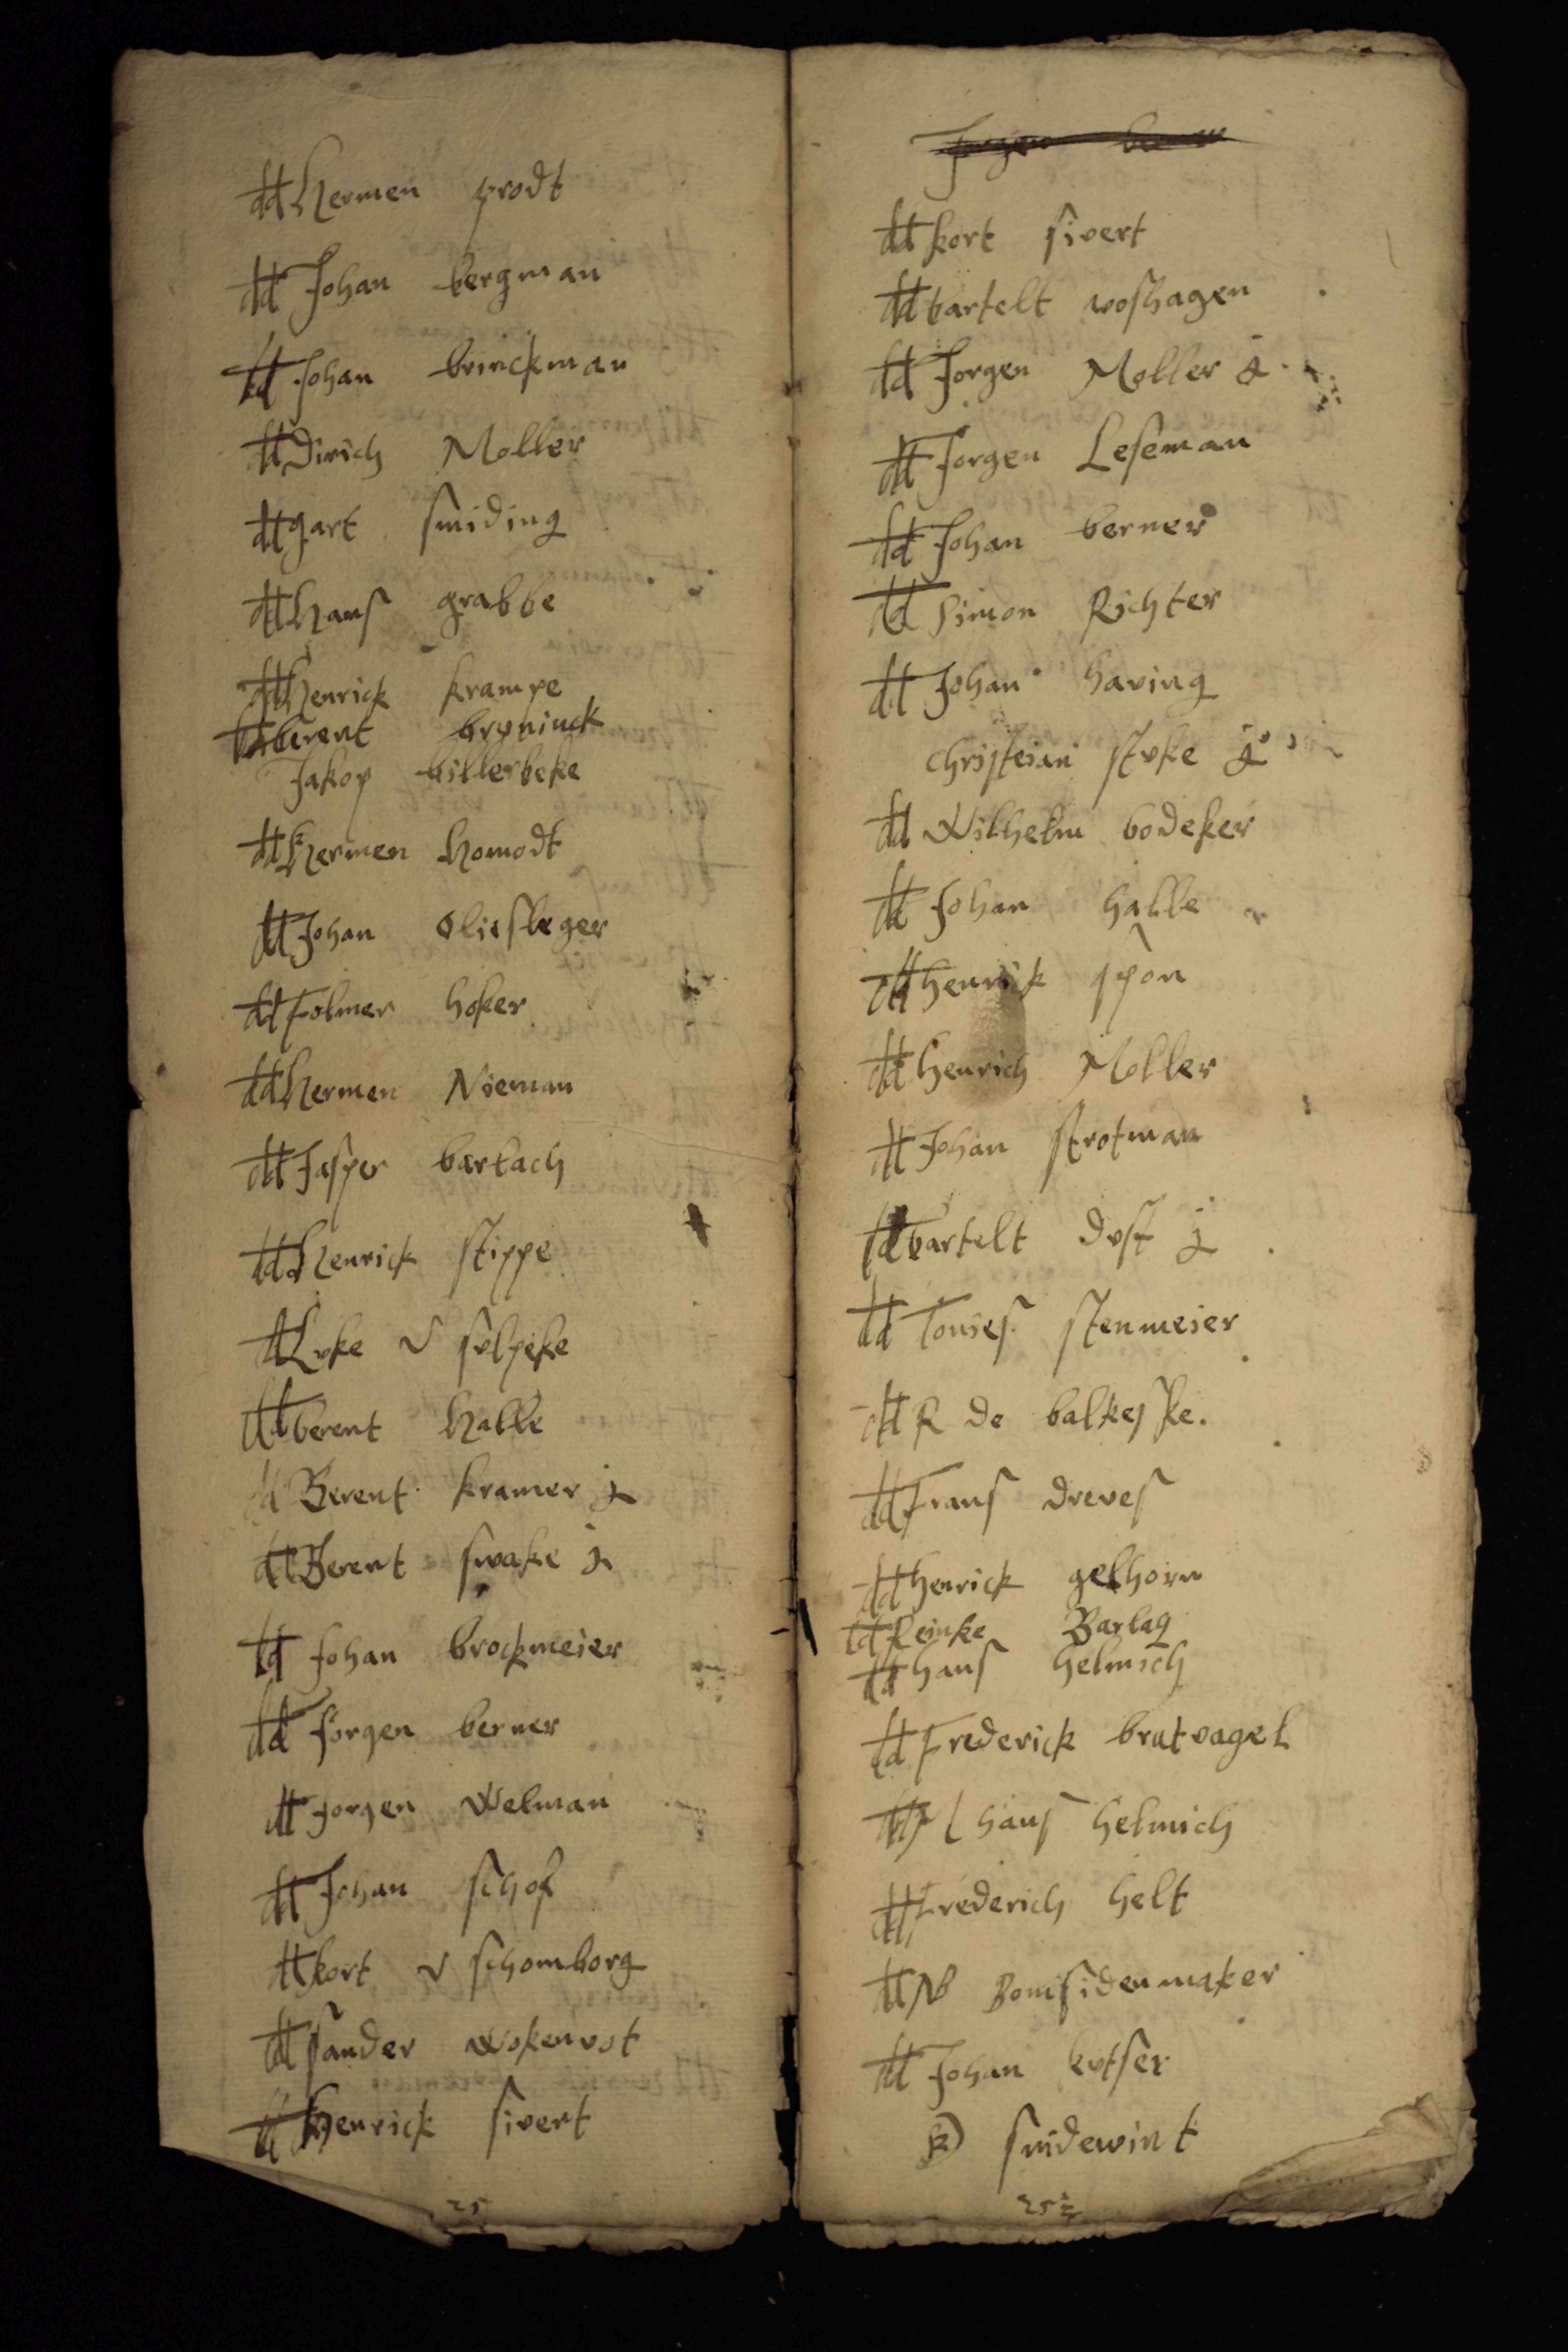 dd Hermen prodt
dd Johan bergman
dd Johan brinckman
dd Dirich Moller
dd gart smiding
dd Hans grabbe
dd Henrick krampe
dd berent bruninck
Jakop billerbeke
dd Hermen Homodt
dd Johan Oliesleger
dd Folmer hoker
dd Hermen Nieman
dd Jasper barlach
dd Henrick stippe
dd Luke v sulpeke
dd berent Halle
dd Berent kramer j
dd Berent swake j
dd Johan brockmeier
dd Jorgen berner
dd Jorgen Welman
dd Johan schof
dd kort v schomborg
dd sander wokenvot
dd Henrick sivert
25
Jorgen
dd kort sivert
dd bartelt voshagen
dd Jorgen Moller j
dd Jorgen Leseman
dd Johan berner
dd Simon Richter
dd Johan having
Christeian stuke j
dd Wilhelm bodeker
dd Johan halle
dd henrick spon
dd henrich Moller
dd Johan strotman
dd bartelt dust j
dd Tonies stenmeier
dd R de balkeske.
dd Frans dreves
dd henrick gelhorn
dd Reinke Barlag
dd hans helmich
dd Frederick bratvagel
dd M hans helmich
dd Frederich helt
dd N Bomsidenmaker
dd Johan kutser
snidewint
25½